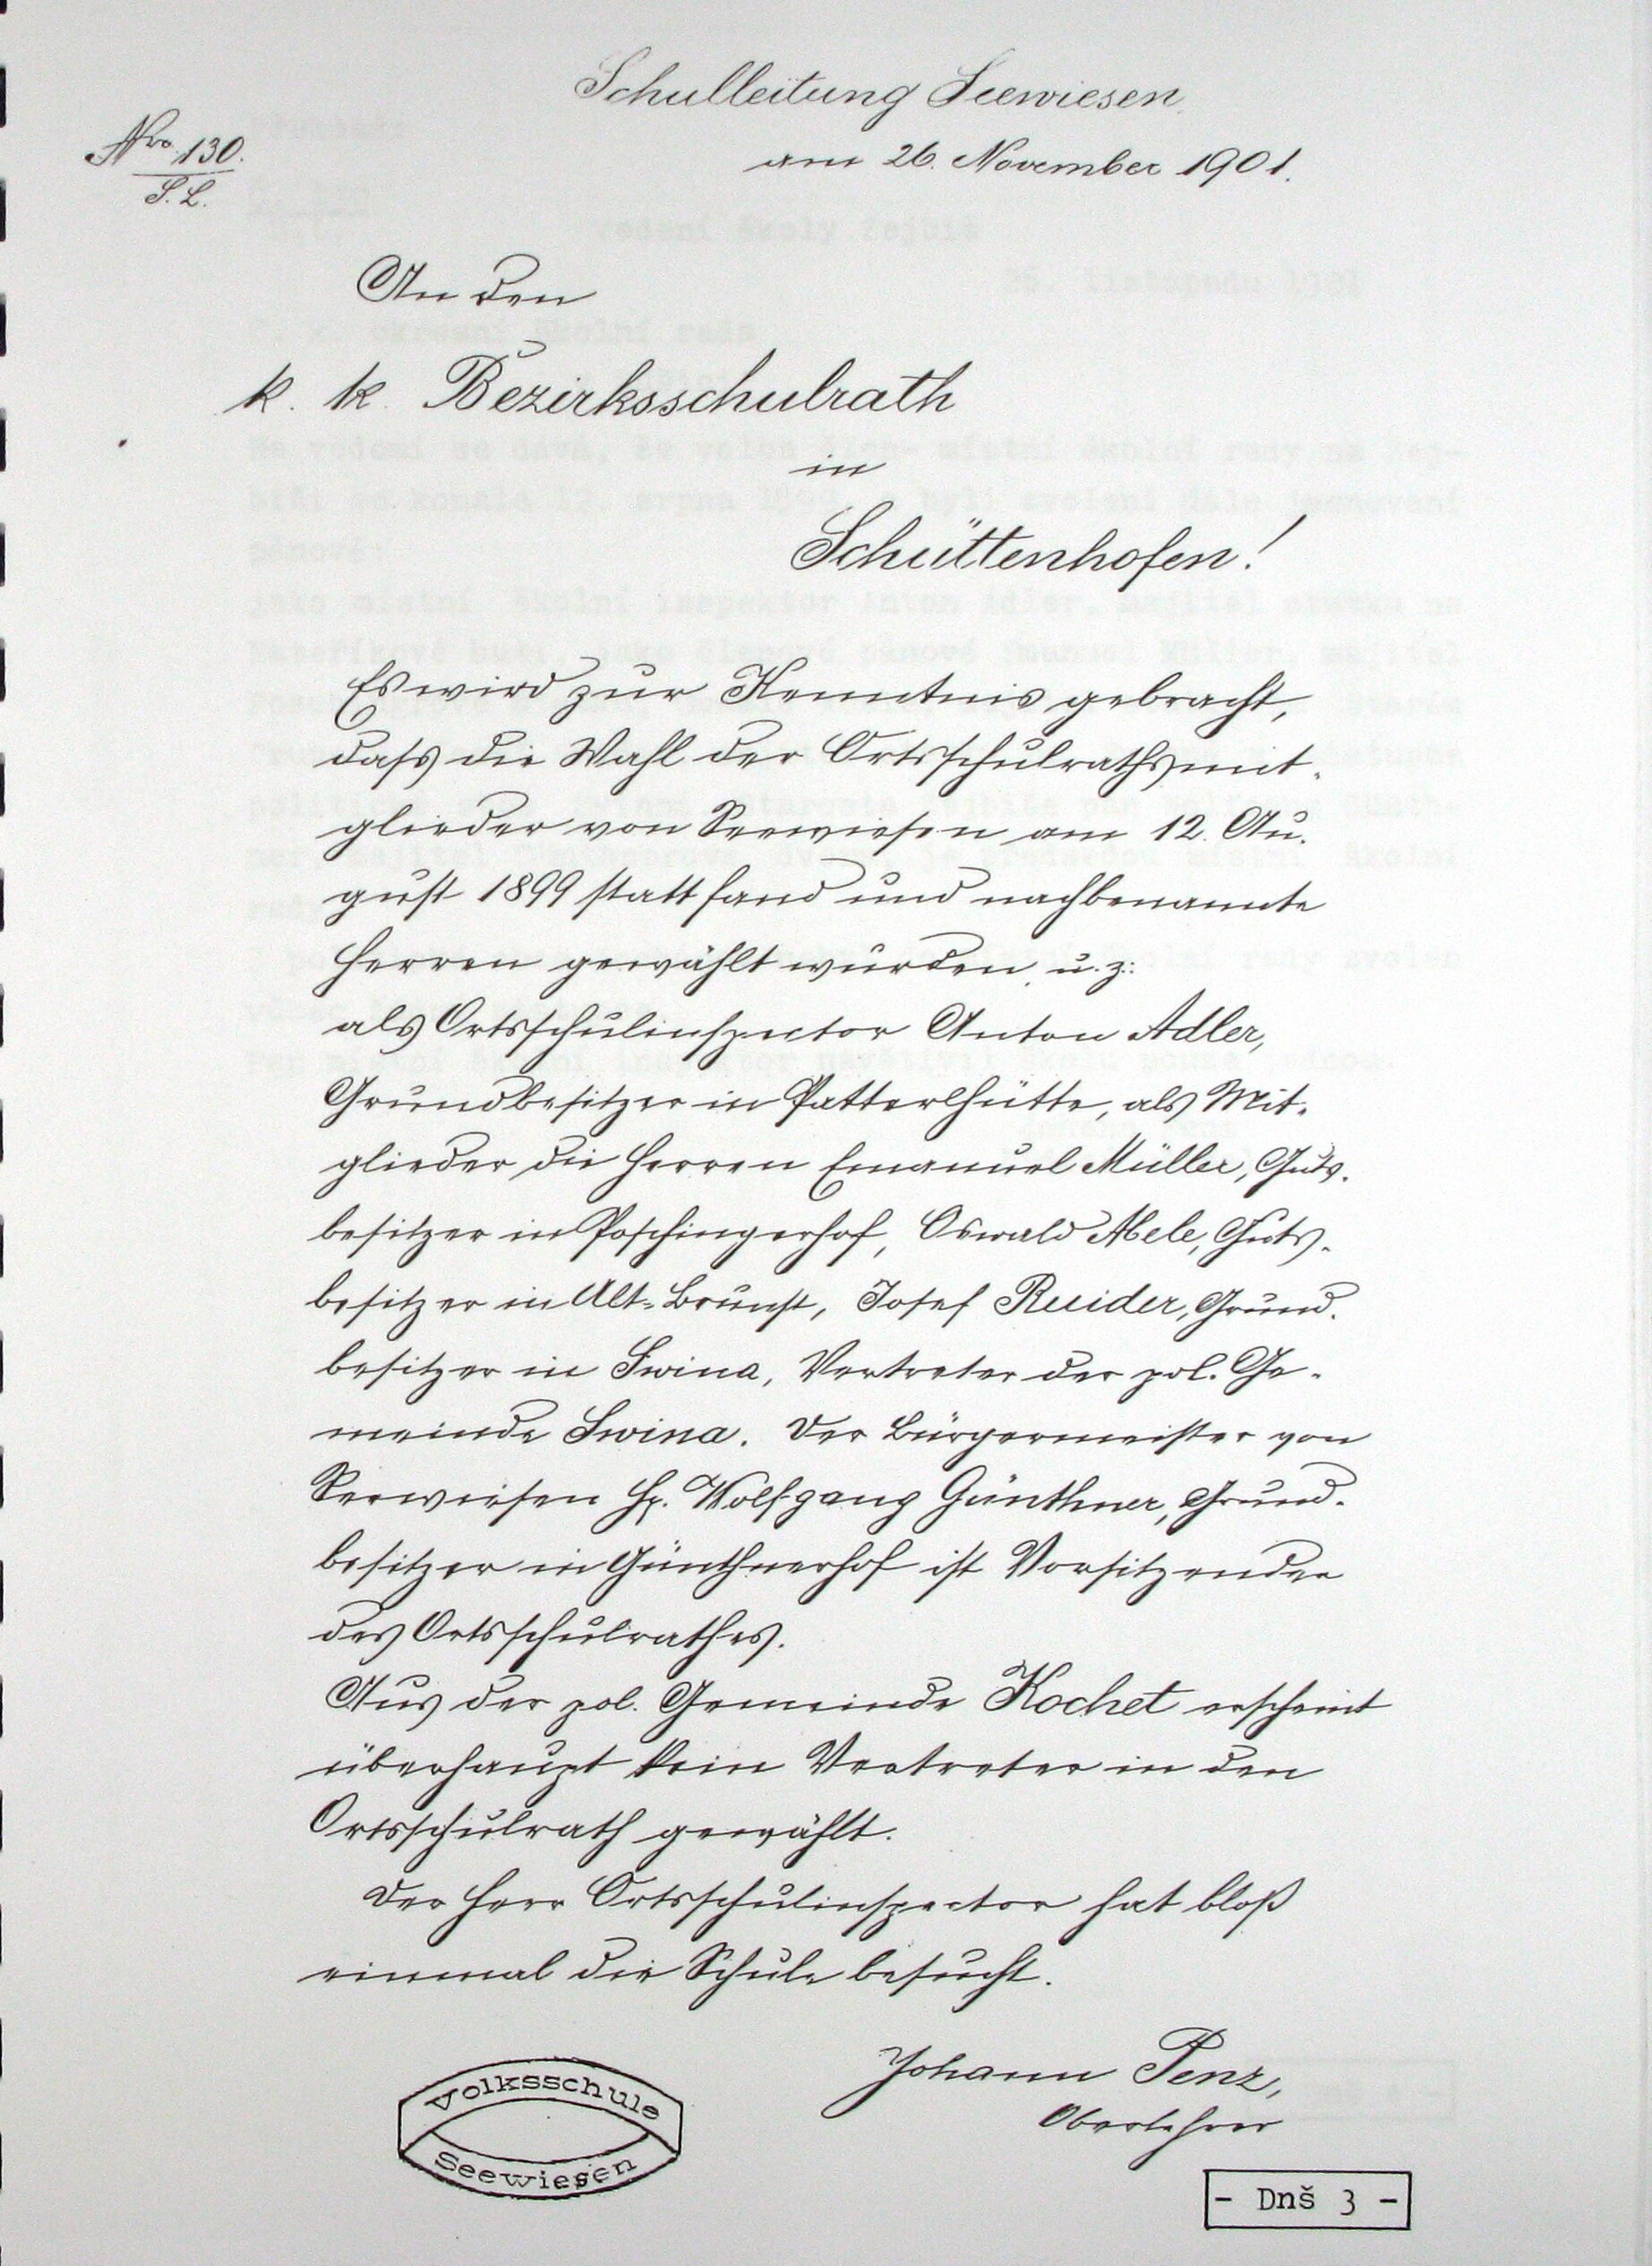 Schulleitung Seewiesen
am 26. November 1901.
Nro 130.
S. L.
An den
k. k. Bezirksschulrath
in
Schüttenhofen!
Es wird zur Kenntnis gebracht,
dass die Wahl der Ortsschulrathsmit-
glieder von Seewiesen am 12. Au-
gust 1899 stattfand und nachbenannte
Herren gewählt wurden, u. z.:
als Ortsschulinspector Anton Adler,
Grundbesitzer in Patterlhütte, als Mit-
glieder die Herren Emanuel Müller, Guts-
besitzer in Poschingerhof, Oswald Abele, Guts-
besitzer in Alt-Brunst, Josef Ruider, Grund-
besitzer in Swina, Vertreter der pol. Ge-
meinde Swina. Der Bürgermeister von
Seewiesen H. Wolfgang Günthner, Grund-
besitzer in Günthnerhof ist Vorsitzender
des Ortsschulrathes.
Aus der pol. Gemeinde Kochet erscheint
überhaupt kein Vertreter in den
Ortsschulrath gewählt.
Der Herr Ortsschulinspector hat bloß
einmal die Schule besucht.
Johann Penz,
Oberlehrer
Volksschule
Seewiesen
- Dnš 3 -